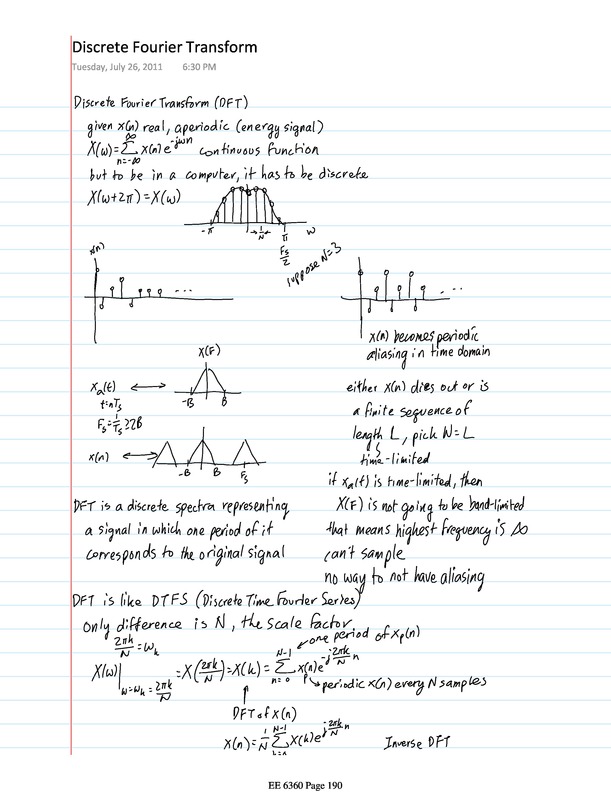 Discrete Fourier Transform
Tuesday, July 26, 2011 6:30 PM
Discrete Fourier Transform (DFT)
given x(n) real, aperiodic (energy signal)
X(ω)=∑_{n=-∞}^{∞} x(n)e^{-jωn} continuous function
but to be in a computer, it has to be discrete
X(ω+2π)=X(ω)
-π 1/N π ω
Fs/2
x(n)
...
suppose N=3
...
x(n) becomes periodic
aliasing in time domain
X(F)
xa(t) ⟷ -B B
t=nTs
Fs=1/Ts≥2B
x(n) ⟷ -B B Fs
either x(n) dies out or is
a finite sequence of
length L, pick N=L
time-limited
if xa(t) is time-limited, then
X(F) is not going to be band-limited
that means highest frequency is ∞
can't sample
no way to not have aliasing
DFT is a discrete spectra representing
a signal in which one period of it
corresponds to the original signal
DFT is like DTFS (Discrete Time Fourier Series)
only difference is N, the scale factor
2πk/N=ωk
one period of xp(n)
X(ω)|_{ω=ωk=2πk/N} =X(2πk/N)=X(k)=∑_{n=0}^{N-1} xp(n)e^{-j2πk/N n}
periodic x(n) every N samples
DFT of x(n)
x(n)=1/N ∑^{N-1} X(k)e^{j2πk/N n} Inverse DFT
EE 6360 Page 190